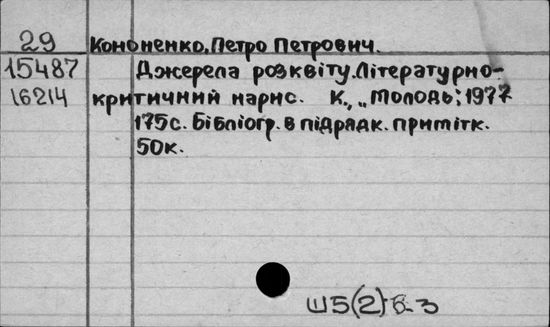 29 Кононенко, Петро Петрович.
15487 Джерела розквіту. Літературно-
16214 критичний нарис. К., „Молодь", 1977
175с. Бібліогр. в підрядк. примітк.
50к.
Ш5(2)6-3